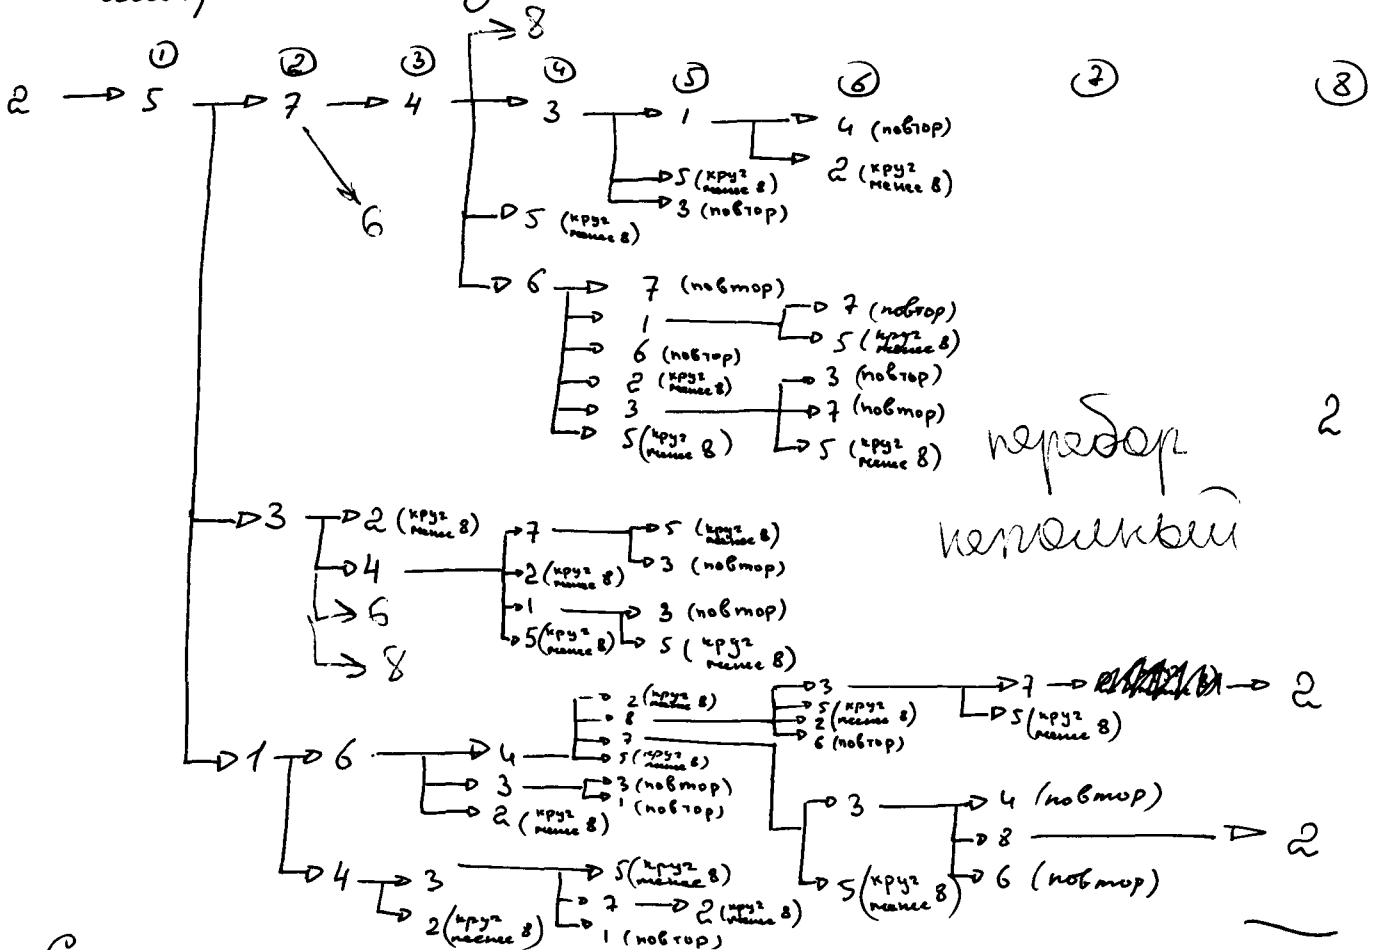 8
① ② ③ ④ ⑤ ⑥ ⑦ ⑧
2 5 7 4 3 1 4 (повтор)
2 (круг менее 8)
5 (круг менее 8)
3 (повтор)
6
5 (круг менее 8)
6 7 (повтор)
1 7 (повтор)
5 (круг менее 8)
6 (повтор)
2 (круг менее 8) 3 (повтор)
3 7 (повтор)
5 (круг менее 8) 5 (круг менее 8)
перебор 2
неполный
3 2 (круг менее 8) 7 5 (круг менее 8)
3 (повтор)
4 2 (круг менее 8)
6 1 3 (повтор)
5 (круг менее 8) 5 (круг менее 8)
8
2 (круг менее 8) 3 7 2
8 5 (круг менее 8) 5 (круг менее 8)
2 (круг менее 8)
7 6 (повтор)
1 6 4 5 (круг менее 8)
3 3 (повтор)
1 (повтор)
2 (круг менее 8)
3 4 (повтор)
8 2
4 3 5 (круг менее 8) 5 (круг менее 8) 6 (повтор)
2 (круг менее 8) 7 2 (круг менее 8)
1 (повтор)